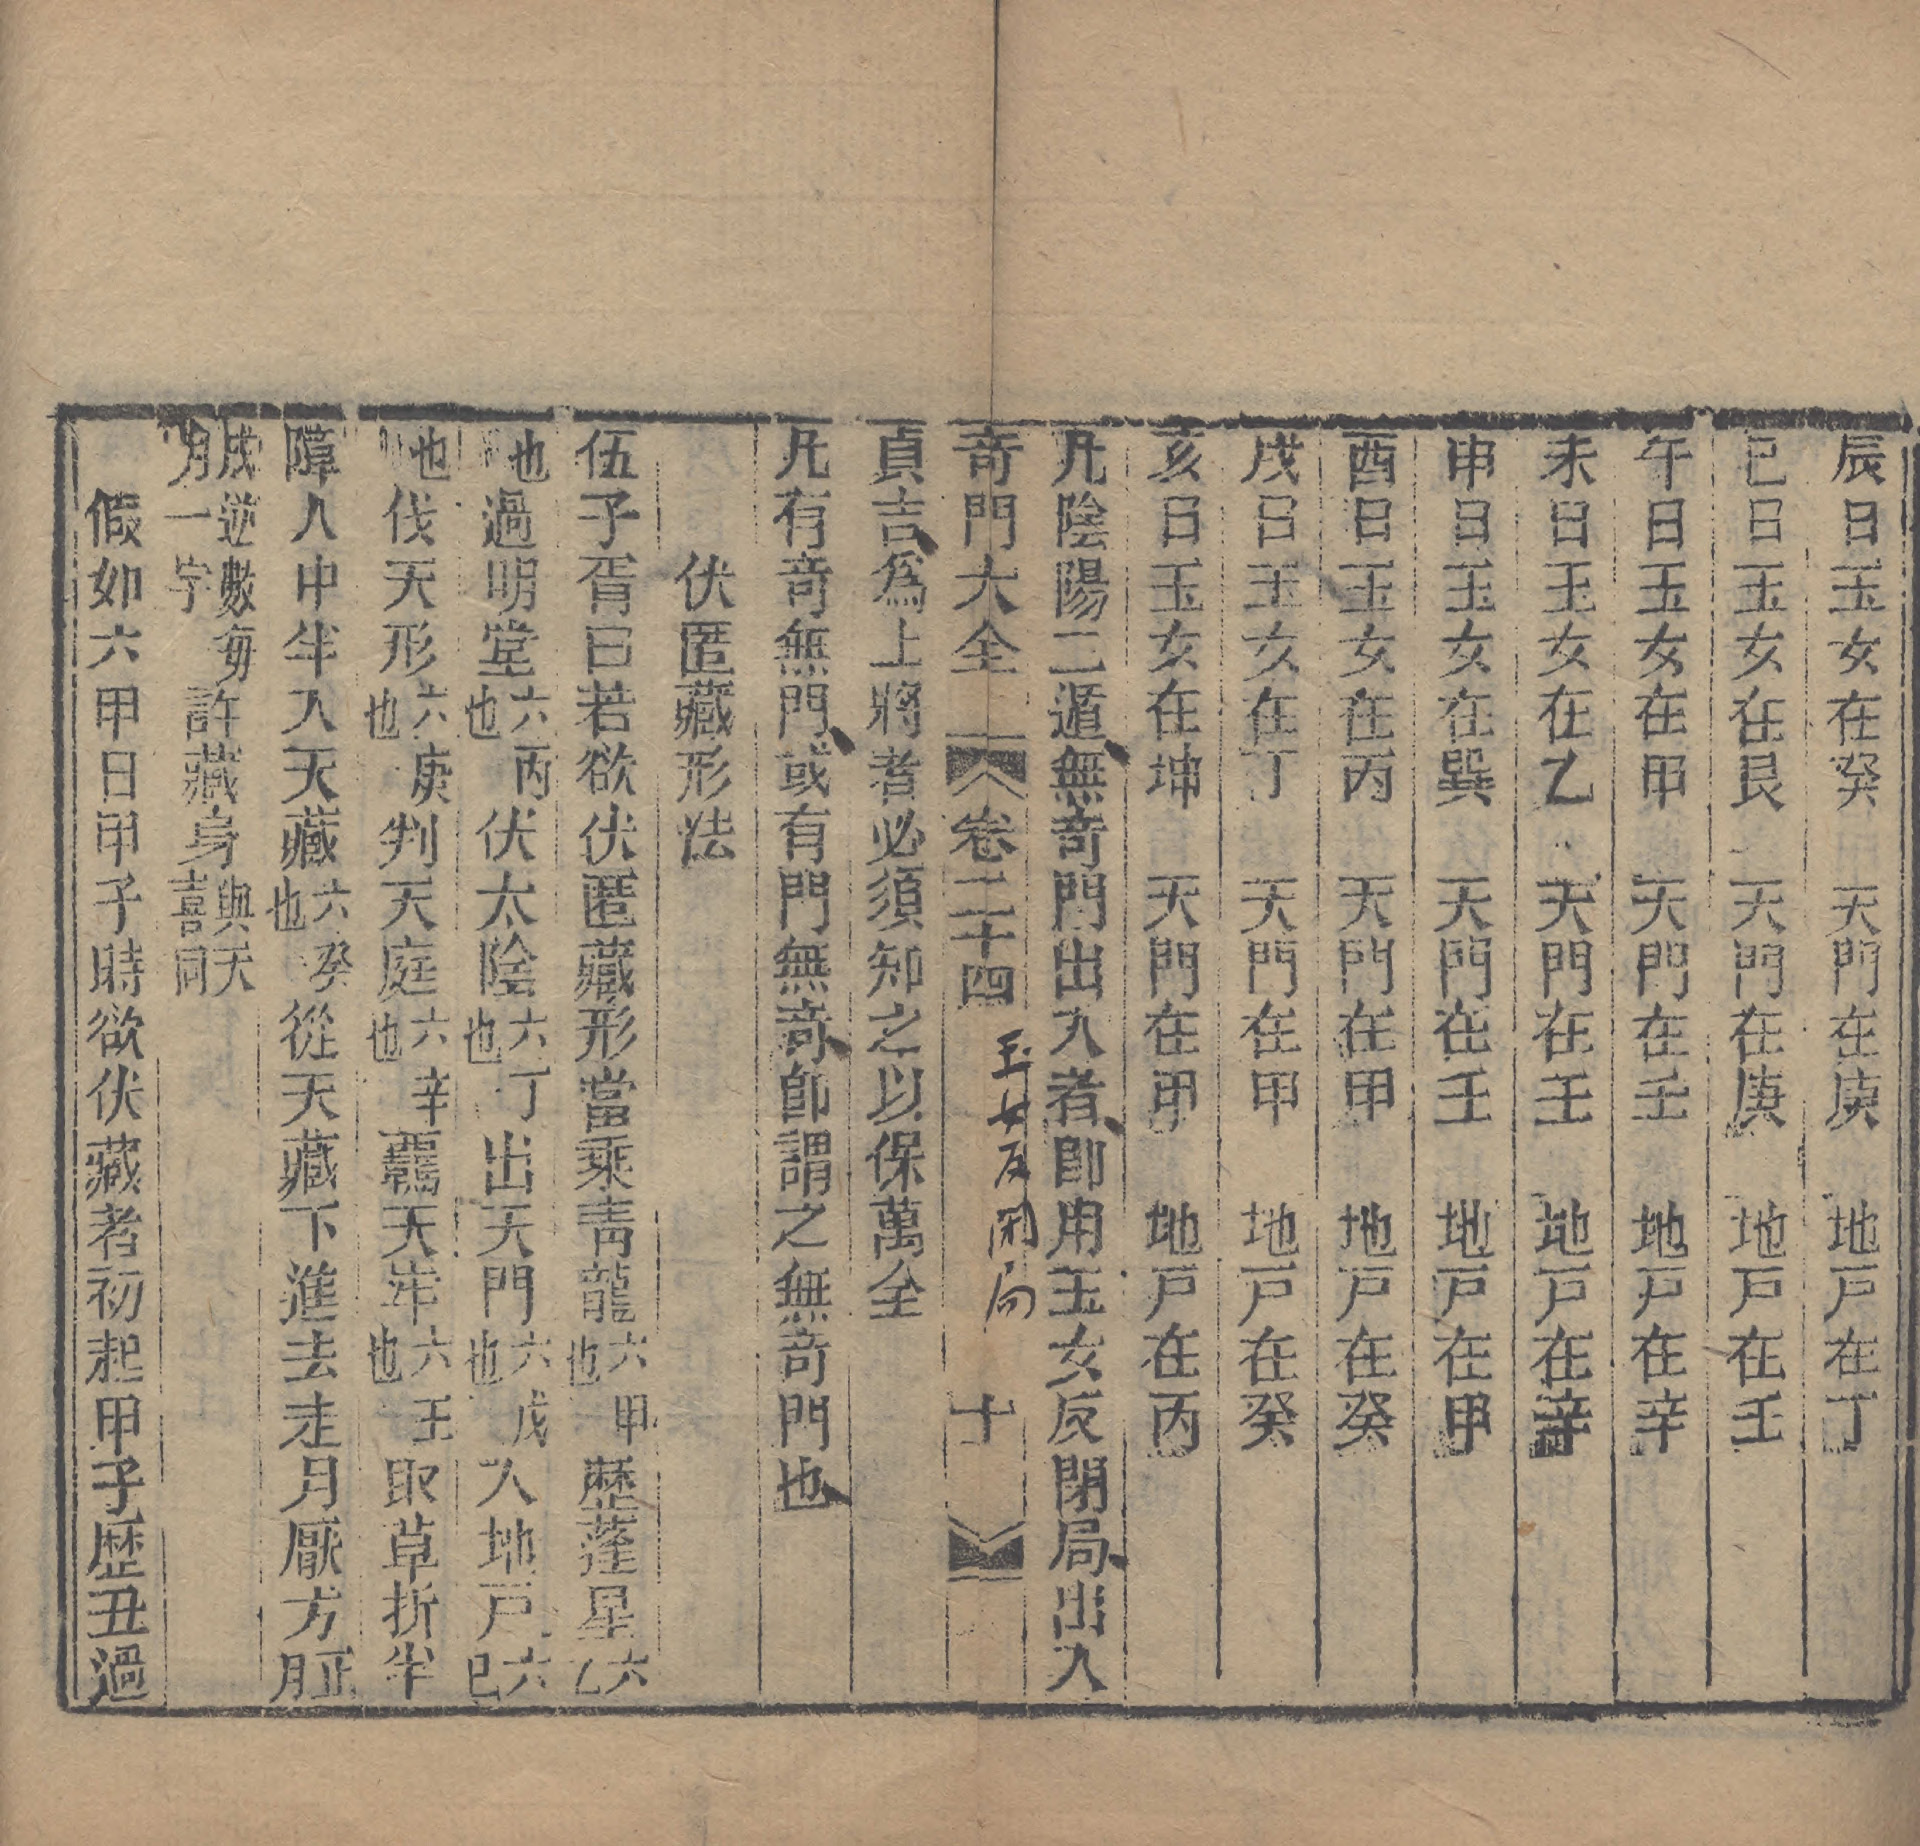 辰日玉女在癸　天門在庚　地戸在丁
巳日玉女在艮　天門在庚　地戸在壬
午日玉女在甲　天門在壬　地戸在辛
未日玉女在乙　天門在壬　地戸在辛
申日玉女在巽　天門在壬　地戸在甲
酉日玉女在丙　天門在甲　地戸在癸
戌日玉女在丁　天門在甲　地戸在癸
亥日玉女在坤　天門在甲　地戸在丙
凡陰陽二遁無竒門出入者即用玉女反閉局出入
竒門大全　卷二十四　玉女反閉局　十
貞吉爲上將者必須知之以保萬全
凡有竒無門或有門無竒即謂之無竒門也
伏匿藏形法
伍子胥曰若欲伏匿藏形當乘靑龍六甲也歷蓬星六乙
也過明堂六丙也伏太陰六丁也出天門六戊也入地戸六己
也伐天形六庚也判天庭六辛也羈天牢六王也取草折半
障人中半入天藏六癸也從天藏下進去走月厭方正月
戌逆數每月一字許藏身與天喜同
假如六甲日甲子時欲伏藏者初起甲子歷丑過